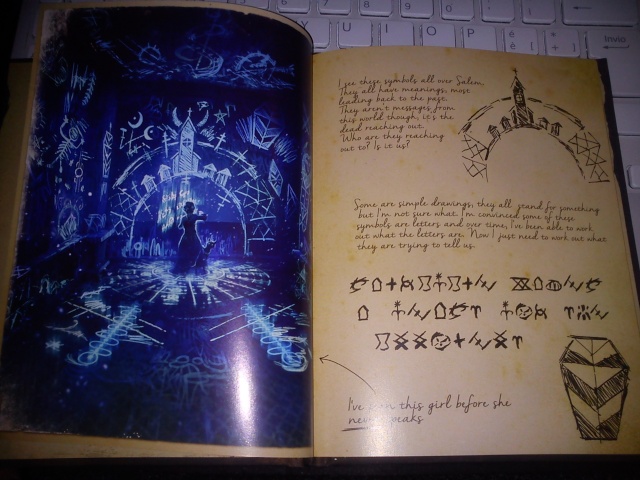 I see these symbols all over Salem.
They all have meanings, most
leading back to the past.
They aren't messages from
this world though, it's the
dead reaching out.
Who are they reaching
out to? Is it us?
Some are simple drawings, they all stand for something
but I'm not sure what. I'm convinced some of these
symbols are letters and over time, I've been able to work
out what the letters are. Now I just need to work out what
they are trying to tell us.
I've this girl before she
speaks
Invio